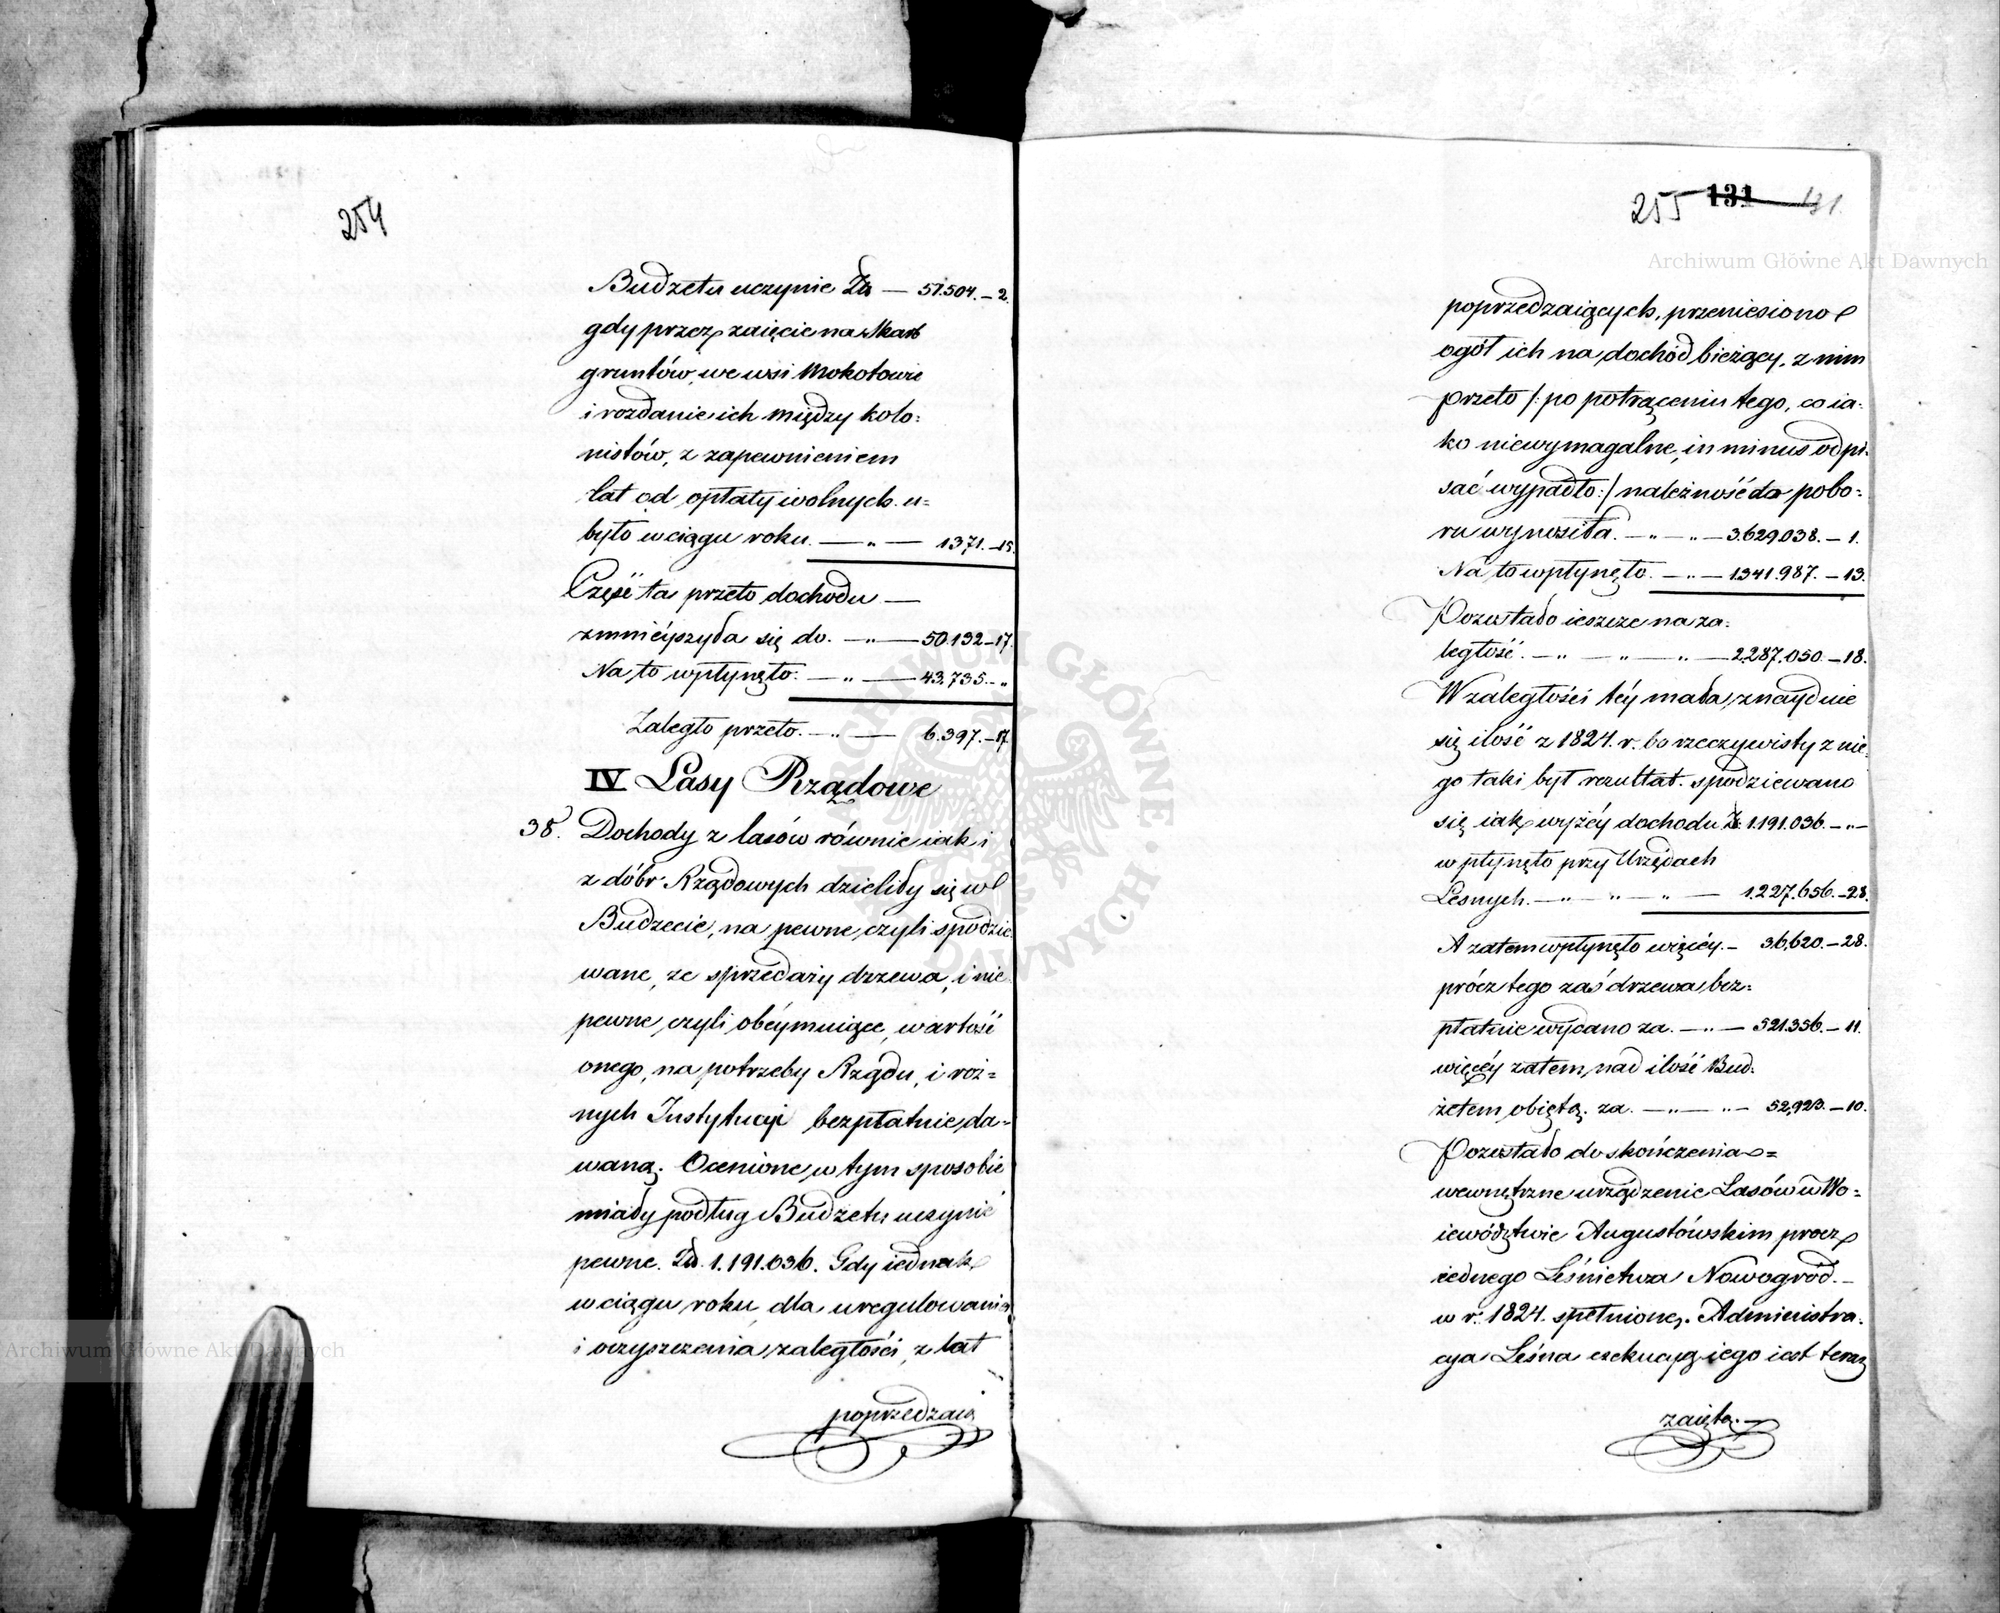 254
Budżetu uczynić Zł. — 51.504. — 2.
gdy przez zaięcie na Skarb
gruntów we wsi Mokotowie
i rozdanie ich między kolo:
nistów, z zapewnieniem
lat od opłaty wolnych u=
było w ciągu roku. — „ — 1371. — 15.
Część ta przeto dochodu —
zmnieyszyła się do. — „ — 50.132 — 17.
Na to wpłynęło. — „ — 43.735. — „
Zaległo przeto. — „ — 6.397. — 17
IV Lasy Rządowe
38. Dochody z lasów równie iak i
z dóbr Rządowych dzieliły się w
Budżecie, na pewne, czyli spodzie
wane, ze sprzedaży drzewa, i nie
pewne, czyli obeymuiące, wartość
onego, na potrzeby Rządu, i roż=
nych Instytucyi bezpłatnie da=
waną. Ocenione w tym sposobie
miały podług Budżetu uczynić
pewne. Zł. 1.191.036. Gdy iednak
w ciągu roku, dla uregulowania
i oczyszczenia zaległości, z lat
poprzedzaią
255 131 131.
Archiwum Główne Akt Dawnych
poprzedzaiących, przeniesiono
ogół ich na dochód bieżący, z nim
przeto /: po potrąceniu tego, co ia:
ko niewymagalne, in minus odpi:
sać wypadło :/ należność do pobo:
ru wynosiła. — „ — „ — 3.629.038. — 1.
Na to wpłynęło. — „ — 1.341.987. — 13.
Pozostało ieszcze na za:
ległość. — „ — „ — „ — 2.287.050. — 18.
W zaległości tey mała, znayduie
się ilość z 1824. r. bo rzeczywisty z nie
go taki był rezultat. spodziewano
się iak wyżey dochodu Zł. 1.191.036. — „ —
wpłynęło przy Urzędach
Leśnych. — „ — „ — „ — 1.227.656. — 28.
A zatem wpłynęło więcey. — 36,620. — 28.
prócz tego zaś drzewa bez=
płatnie wydano za. — „ — 521.356. — 11.
więcey zatem, nad ilość Bud:
żetem obiętą. za. — „ — „ — 52,923. — 10.
Pozostało do skończenia =
wewnętrzne urządzenie Lasów w Wo=
iewództwie Augustowskim, prócz
iednego Leśnictwa Nowogród. —
w r. 1824. spełnione. Administra:
cya Leśna exekucyą iego iest teraz
zaiętą. —
Archiwum Główne Akt Dawnych
ARCHIWUM GŁÓWNE AKT DAWNYCH